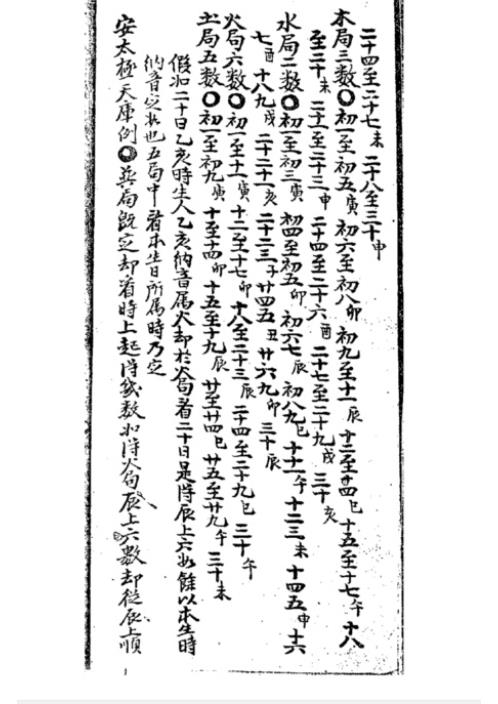 二十四至二十七未 二十八至三十申
木局三数〇初一至初五寅 初六至初八卯 初九至十一辰 十二至十四巳 十五至十七午 十八
至二十未 二十一至二十三申 二十四至二十六酉 二十七至二十九戌 三十亥
水局二数〇初一至初三寅 初四至初五卯 初六七辰 初八九巳 十十一午 十二三未 十四五申 十六
七酉 十八九戌 二十二十一亥 二十二三子 廿四五丑 廿六九卯 三十辰
火局六数〇初一至十一寅 十二至十七卯 十八至二十三辰 二十四至二十九巳 三十午
土局五数〇初一至初九寅 十至十四卯 十五至十九辰 廿至廿四巳 廿五至廿九午 三十未
假如二十日乙亥時生人乙亥纳音属火却於火局看二十日是得辰上六数餘以本生時
纳音定決也五局中看本生日所属時乃定
安太極天庫例〇其局既定却看時上起得幾数如得火局辰上六数却從辰上順